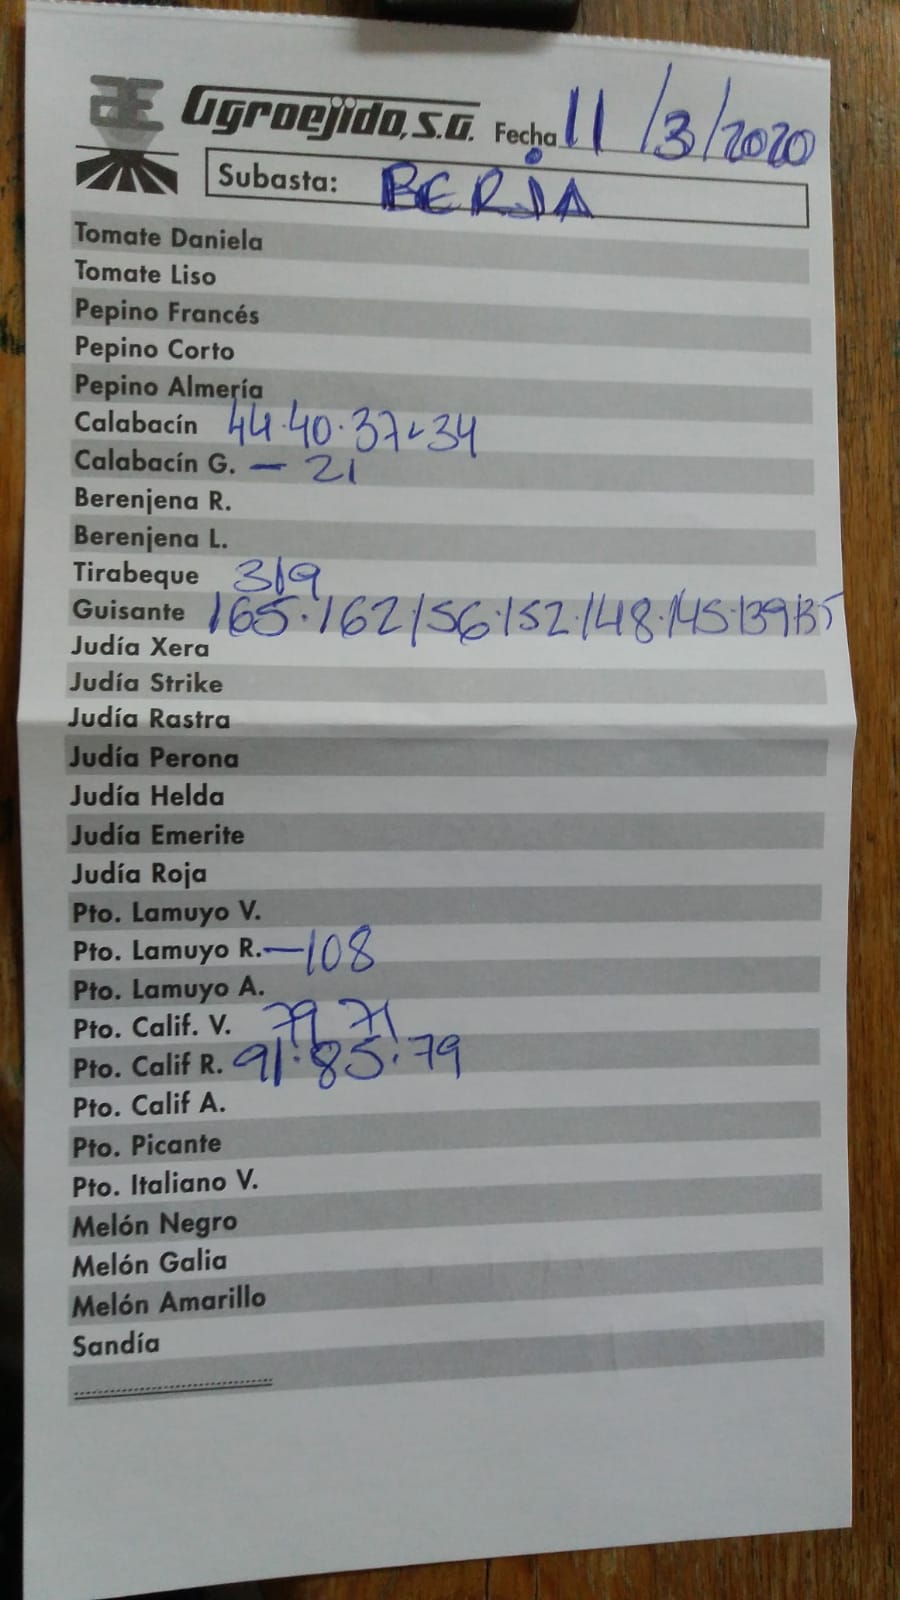 Agroejido, S.A. Fecha 11/3/2020
Subasta: BERJA
Tomate Daniela
Tomate Liso
Pepino Francés
Pepino Corto
Pepino Almería
Calabacín 44·40·37-34
Calabacín G. - 21
Berenjena R.
Berenjena L.
Tirabeque 319
Guisante 165·162 156·152·148·145·139 135
Judía Xera
Judía Strike
Judía Rastra
Judía Perona
Judía Helda
Judía Emerite
Judía Roja
Pto. Lamuyo V.
Pto. Lamuyo R. -108
Pto. Lamuyo A.
Pto. Calif. V. 79 71
Pto. Calif R. 91·85·79
Pto. Calif A.
Pto. Picante
Pto. Italiano V.
Melón Negro
Melón Galia
Melón Amarillo
Sandía